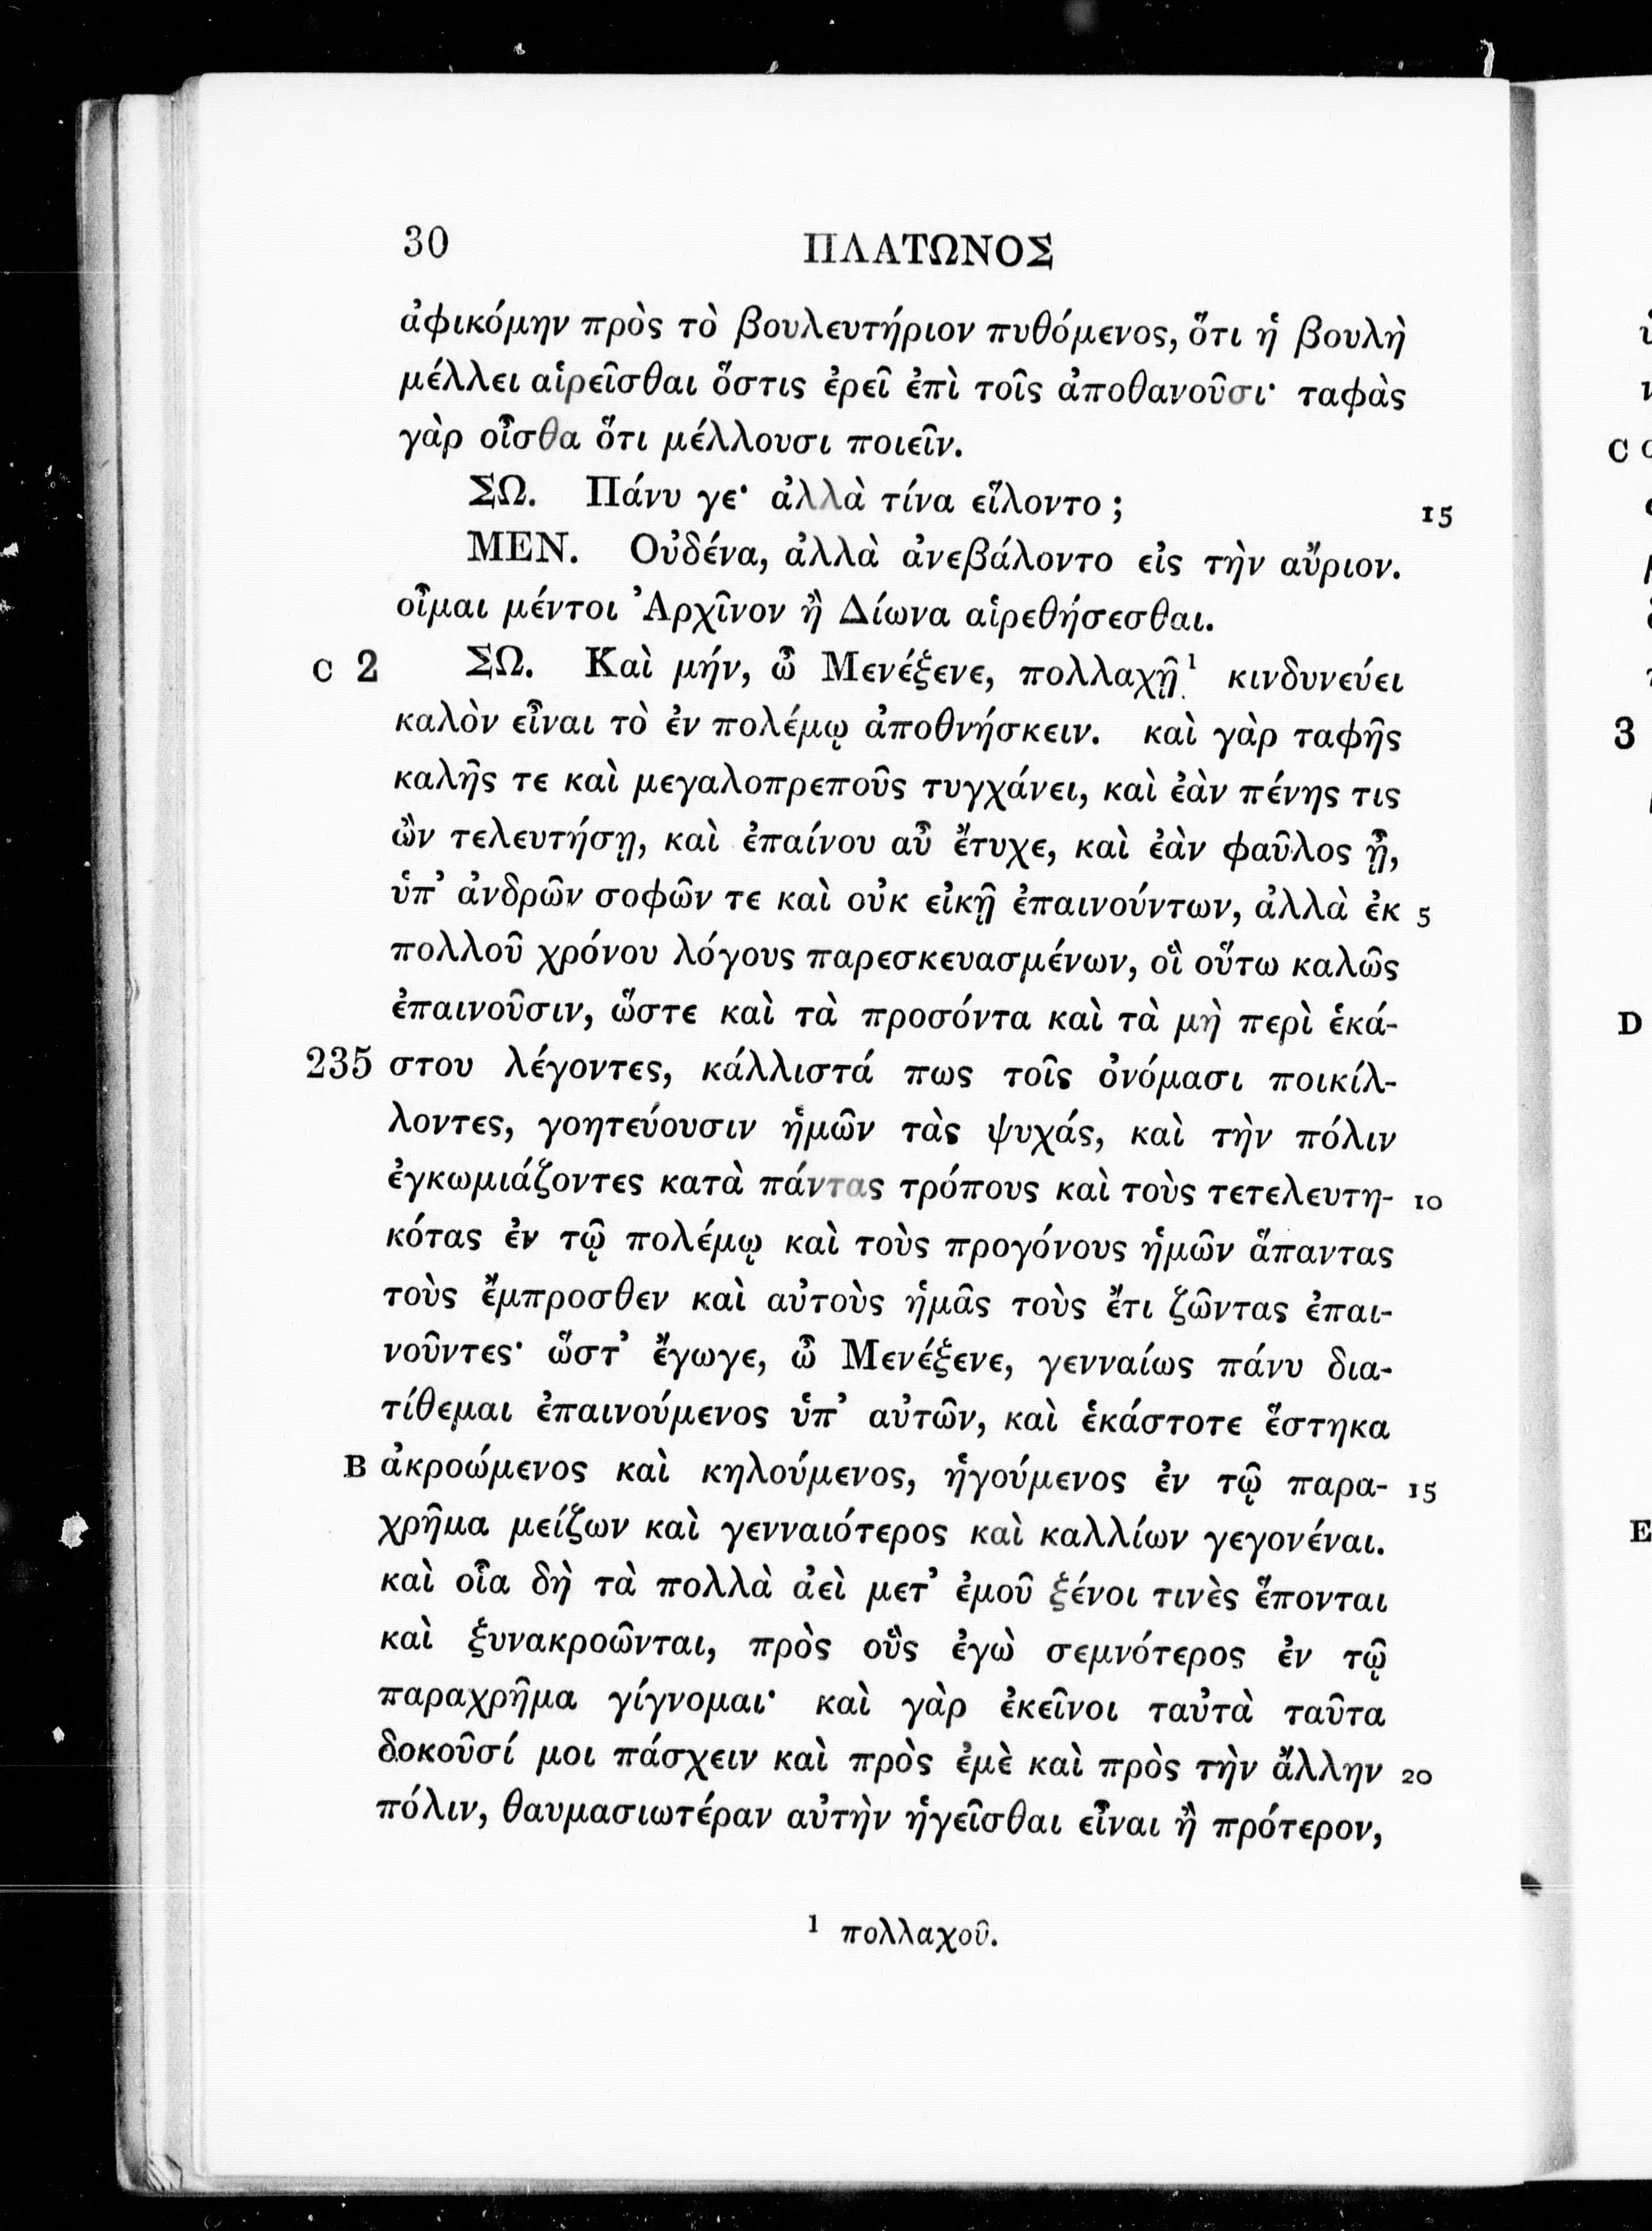 30 ΠΛΑΤΩΝΟΣ
ἀφικόμην πρὸς τὸ βουλευτήριον πυθόμενος, ὅτι ἡ βουλὴ
μέλλει αἱρεῖσθαι ὅστις ἐρεῖ ἐπὶ τοῖς ἀποθανοῦσι· ταφὰς
γὰρ οἶσθα ὅτι μέλλουσι ποιεῖν.
ΣΩ. Πάνυ γε· ἀλλὰ τίνα εἵλοντο; 15
ΜΕΝ. Οὐδένα, ἀλλὰ ἀνεβάλοντο εἰς τὴν αὔριον.
οἶμαι μέντοι Ἀρχῖνον ἢ Δίωνα αἱρεθήσεσθαι.
C 2 ΣΩ. Καὶ μήν, ὦ Μενέξενε, πολλαχῇ¹ κινδυνεύει
καλὸν εἶναι τὸ ἐν πολέμῳ ἀποθνήσκειν. καὶ γὰρ ταφῆς
καλῆς τε καὶ μεγαλοπρεποῦς τυγχάνει, καὶ ἐὰν πένης τις
ὢν τελευτήσῃ, καὶ ἐπαίνου αὖ ἔτυχε, καὶ ἐὰν φαῦλος ᾖ,
ὑπ’ ἀνδρῶν σοφῶν τε καὶ οὐκ εἰκῇ ἐπαινούντων, ἀλλὰ ἐκ 5
πολλοῦ χρόνου λόγους παρεσκευασμένων, οἳ οὕτω καλῶς
ἐπαινοῦσιν, ὥστε καὶ τὰ προσόντα καὶ τὰ μὴ περὶ ἑκά-
235 στου λέγοντες, κάλλιστά πως τοῖς ὀνόμασι ποικίλ-
λοντες, γοητεύουσιν ἡμῶν τὰς ψυχάς, καὶ τὴν πόλιν
ἐγκωμιάζοντες κατὰ πάντας τρόπους καὶ τοὺς τετελευτη- 10
κότας ἐν τῷ πολέμῳ καὶ τοὺς προγόνους ἡμῶν ἅπαντας
τοὺς ἔμπροσθεν καὶ αὐτοὺς ἡμᾶς τοὺς ἔτι ζῶντας ἐπαι-
νοῦντες· ὥστ’ ἔγωγε, ὦ Μενέξενε, γενναίως πάνυ δια-
τίθεμαι ἐπαινούμενος ὑπ’ αὐτῶν, καὶ ἑκάστοτε ἕστηκα
B ἀκροώμενος καὶ κηλούμενος, ἡγούμενος ἐν τῷ παρα- 15
χρῆμα μείζων καὶ γενναιότερος καὶ καλλίων γεγονέναι.
καὶ οἷα δὴ τὰ πολλὰ ἀεὶ μετ’ ἐμοῦ ξένοι τινὲς ἕπονται
καὶ ξυνακροῶνται, πρὸς οὓς ἐγὼ σεμνότερος ἐν τῷ
παραχρῆμα γίγνομαι· καὶ γὰρ ἐκεῖνοι ταὐτὰ ταῦτα
δοκοῦσί μοι πάσχειν καὶ πρὸς ἐμὲ καὶ πρὸς τὴν ἄλλην 20
πόλιν, θαυμασιωτέραν αὐτὴν ἡγεῖσθαι εἶναι ἢ πρότερον,
¹ πολλαχοῦ.
C
3
D
E